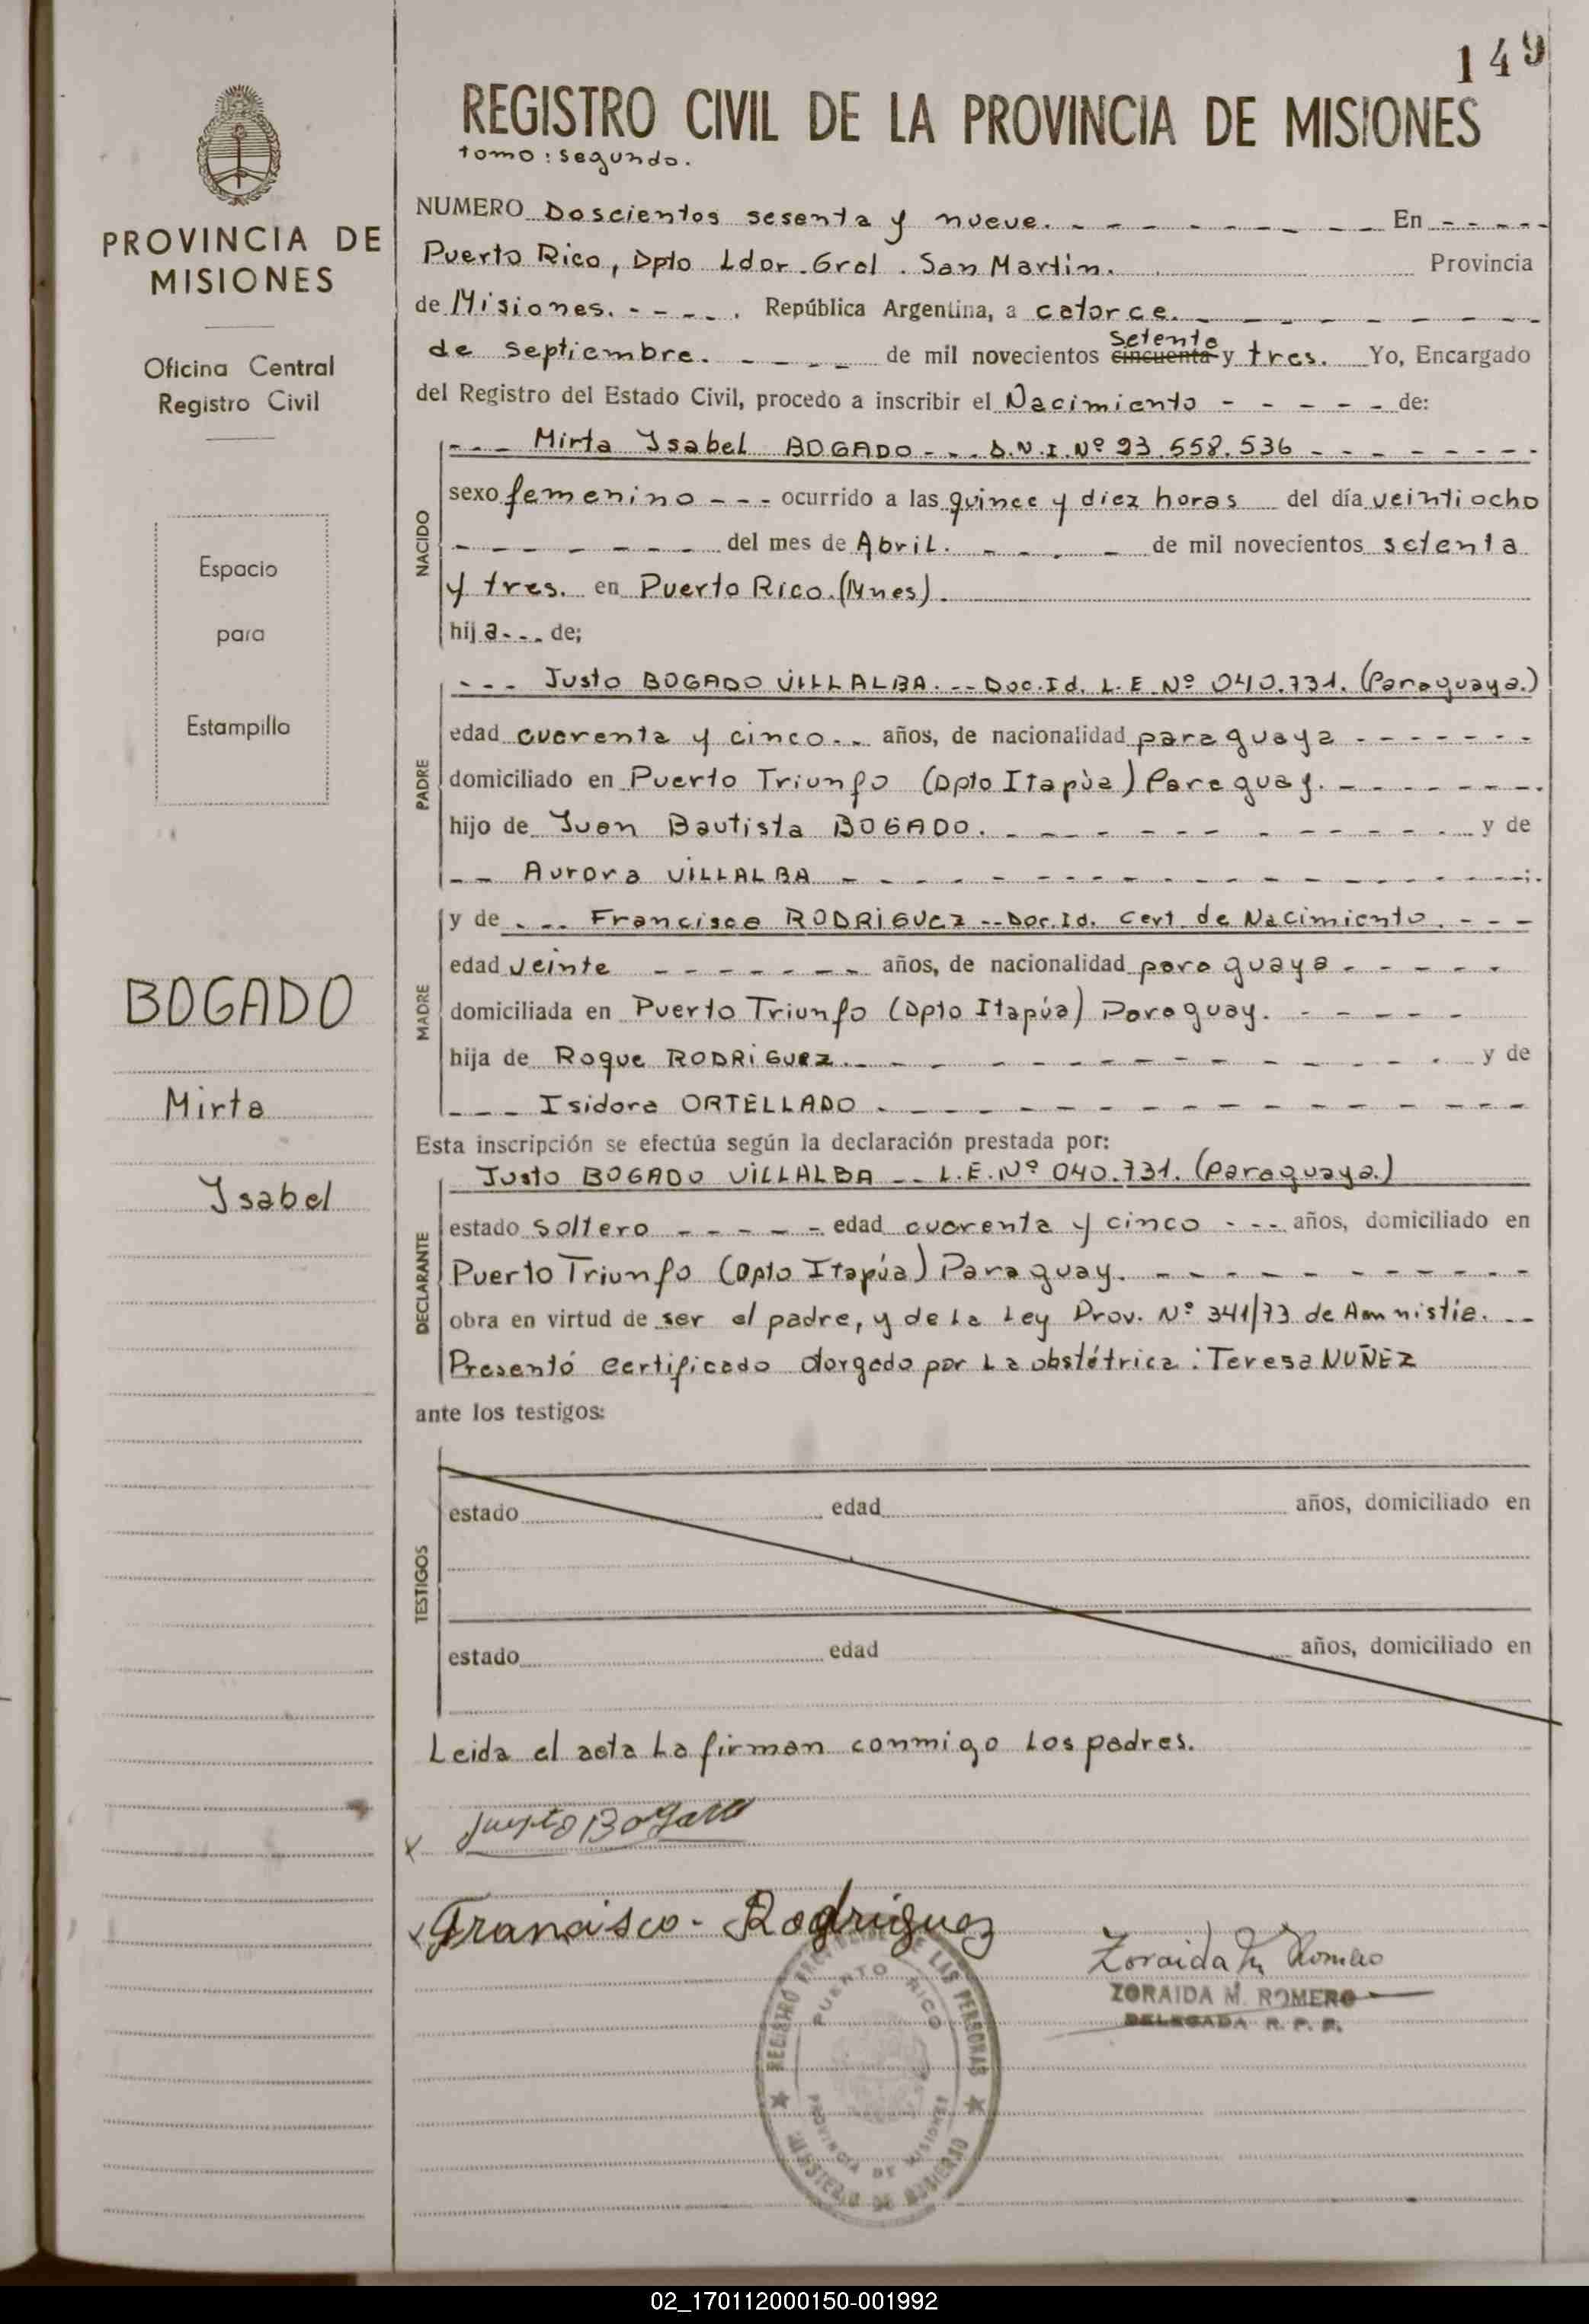 149
REGISTRO CIVIL DE LA PROVINCIA DE MISIONES
tomo: segundo.
PROVINCIA DE
MISIONES
Oficina Central
Registro Civil
Espacio
para
Estampilla
BOGADO
Mirta
Ysabel
NUMERO Doscientos sesenta y nueve. - - - - - - - - En - - - - -
Puerto Rico, Dpto Ldor. Gral. San Martín. Provincia
de Misiones. - - - - . República Argentina, a catorce. - - - - - - -
setenta
de septiembre. - - - - de mil novecientos cincuenta y tres. Yo, Encargado
del Registro del Estado Civil, procedo a inscribir el Nacimiento - - - - - de:
NACIDO
- - - Mirta Ysabel BOGADO - - - D.N.I. Nº 23.558.536 - - - - - - - -
sexo femenino - - - ocurrido a las quince y diez horas del día veintiocho
- - - - - - - del mes de Abril. - - - - de mil novecientos setenta
y tres. en Puerto Rico. (Mnes).
hija - - - de;
PADRE
- - - Justo BOGADO VILLALBA. -- Doc. Id. L.E. Nº 040.731. (Paraguaya.)
edad cuarenta y cinco. - - años, de nacionalidad paraguaya - - - - - - -
domiciliado en Puerto Triunfo (Dpto Itapúa) Paraguay. - - - - - - -
hijo de Juan Bautista BOGADO. - - - - - - - - - - - y de
- - Aurora VILLALBA - - - - - - - - - - - - - - - - -;.
MADRE
y de - - - Francisca RODRIGUEZ -- Doc. Id. Cert. de Nacimiento. - - -
edad veinte - - - - - - - años, de nacionalidad paraguaya - - - - -
domiciliada en Puerto Triunfo (Dpto Itapúa) Paraguay. - - - - -
hija de Roque RODRIGUEZ. - - - - - - - - - - - - y de
- - - Isidora ORTELLADO. - - - - - - - - - - - - - - -
Esta inscripción se efectúa según la declaración prestada por:
DECLARANTE
Justo BOGADO VILLALBA -- L.E. Nº 040.731. (Paraguaya.)
estado soltero - - - - - edad cuarenta y cinco - - - años, domiciliado en
Puerto Triunfo (Dpto Itapúa) Paraguay. - - - - - - - - - - -
obra en virtud de ser el padre, y de la Ley Prov. Nº 341/73 de Amnistía. - -
Presentó certificado otorgado por la obstétrica: Teresa NUÑEZ
ante los testigos:
TESTIGOS
estado edad años, domiciliado en
estado edad años, domiciliado en
Leida el acta La firman conmigo los padres.
x Justo Bogado
x Francisca - Rodriguez
Zoraida M Romero
ZORAIDA M. ROMERO
DELEGADA R. P. P.
REGISTRO PROVINCIAL DE LAS PERSONAS
PUERTO RICO
PROVINCIA DE MISIONES
MINISTERIO DE GOBIERNO
02_170112000150-001992